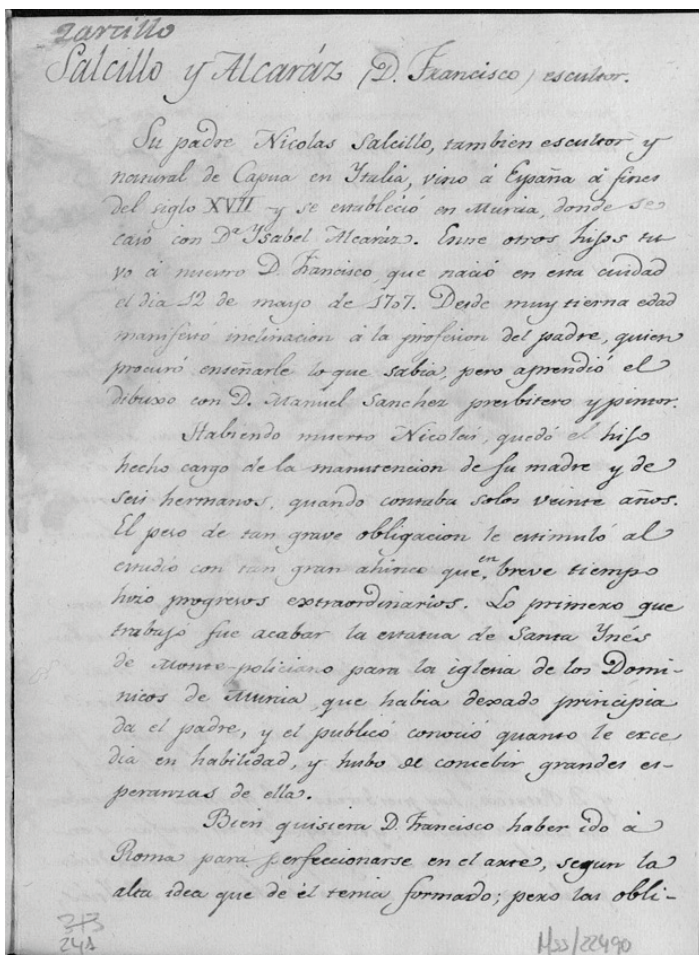 Zarcillo
Salcillo y Alcaráz (D. Francisco) escultor.
Su padre Nicolas Salcillo, tambien escultor y
natural de Capua en Ytalia, vino á España á fines
del siglo XVII y se estableció en Murcia, donde se
casó con Dª Ysabel Alcaráz. Entre otros hijos tu
vo á nuestro D. Francisco, que nació en esta ciudad
el dia 12 de mayo de 1707. Desde muy tierna edad
manifestó inclinacion á la profesion del padre, quien
procuró enseñarle lo que sabia, pero aprendió el
dibuxo con D. Manuel Sanchez presbitero y pintor.
Habiendo muerto Nicolás, quedó el hijo
hecho cargo de la manutencion de su madre y de
seis hermanos, quando contaba solos veinte años.
El peso de tan grave obligacion le estimuló al
estudio con tan gran ahinco que en breve tiempo
hizo progresos extraordinarios. Lo primero que
trabajó fue acabar la estatua de Santa Ynés
de Monte-policiano para la iglesia de los Domi-
nicos de Murcia, que habia dexado principia
da el padre, y el publicó conoció quanto le exce
dia en habilidad, y hubo de concebir grandes es-
peranzas de ella.
Bien quisiera D. Francisco haber ido á
Roma para perfeccionarse en el arte, segun la
alta idea que de él tenia formado; pero las obli-
241
Mss/22490